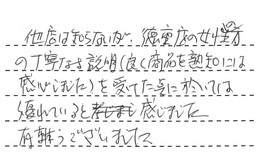 他店は知らないが、徳重店の女性方
の丁寧なる説明(良く商品を熟知には
感心しました)を受てた点に於いては
優れていると感じました
有難うございました